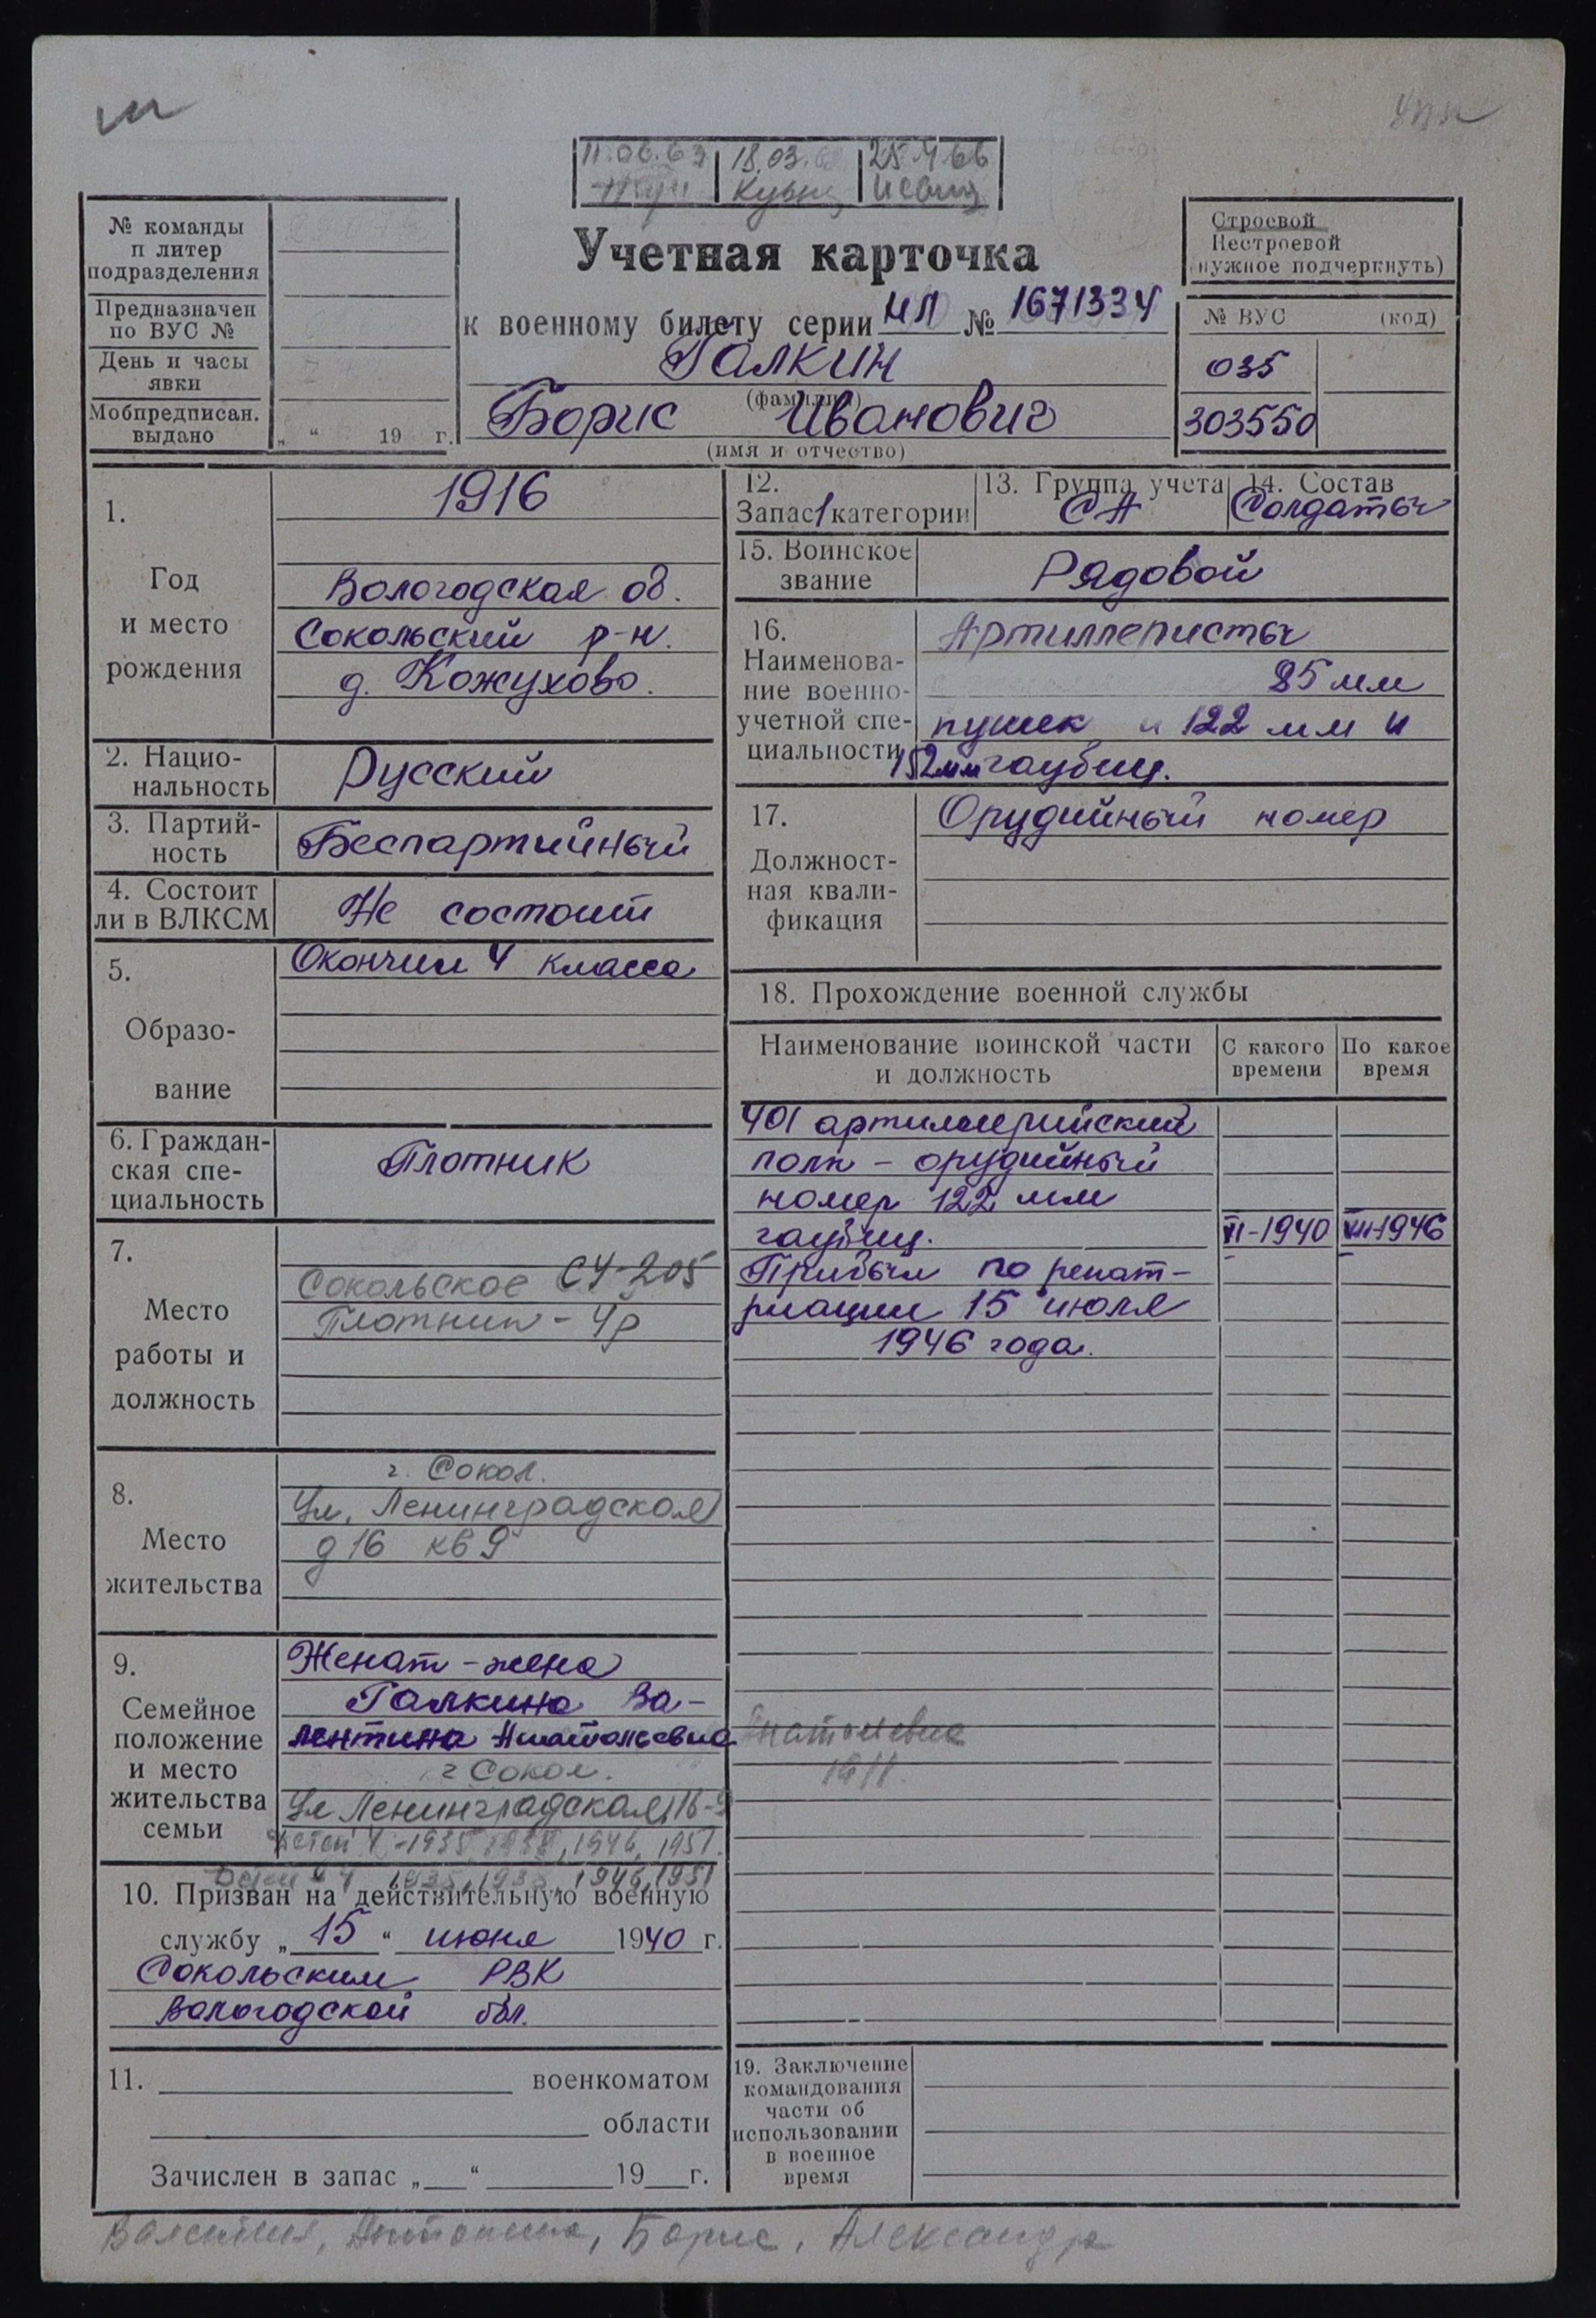 11.06.63 18.03. 25
Кузнец
№ команды
п литер
подразделения
Предназначен
по ВУС №
День и часы
явки
Мобпредписан.
выдано „ “ 19 г.
Учетная карточка
к военному билету серии МЛ № 1671334
Галкин
(фамилия)
Борис Иванович
(имя и отчество)
Строевой
Нестроевой
(нужное подчеркнуть)
№ ВУС (код)
035
303550
1.
Год
и место
рождения
1916
Вологодская об.
Сокольский р-н.
д. Кожухово.
2. Нацио-
нальность
Русский
3. Партий-
ность
Беспартийный
4. Состоит
ли в ВЛКСМ
Не состоит
5.
Образо-
вание
Окончил 4 класса
6. Граждан-
ская спе-
циальность
Плотник
7.
Место
работы и
должность
Сокольское СУ-205
Плотник - 4р
8.
Место
жительства
г. Сокол.
Ул. Ленинградская
д 16 кв 9
9.
Семейное
положение
и место
жительства
семьи
Женат - жена
Галкина Ва-
лентина Анатольевна
г Сокол.
Ул Ленинградская, 16-9
Детей 4 - 1935, 1938, 1946, 1951.
1935, 1938, 1946, 1951
10. Призван на действительную военную
службу „ 15 “ июня 1940 г.
Сокольским РВК
Вологодской обл.
11. военкоматом
области
Зачислен в запас „ “ 19 г.
12.
Запас 1 категории
13. Группа учета
СА
14. Состав
Солдаты
15. Воинское
звание
Рядовой
16.
Наименова-
ние военно-
учетной спе-
циальности
Артиллеристы
85 мм
пушек и 122 мм и
152 мм гаубиц.
17.
Должност-
ная квали-
фикация
Орудийный номер
18. Прохождение военной службы
Наименование воинской части
и должность
С какого
времени
По какое
время
401 артиллерийский
полк - орудийный
номер 122 мм
гаубиц. VI-1940 VII-1946
Прибыл по репат-
риации 15 июля
1946 года.
Анатольевна
1911.
19. Заключение
командования
части об
использовании
в военное
время
Валентина, Антонина, Борис, Александра